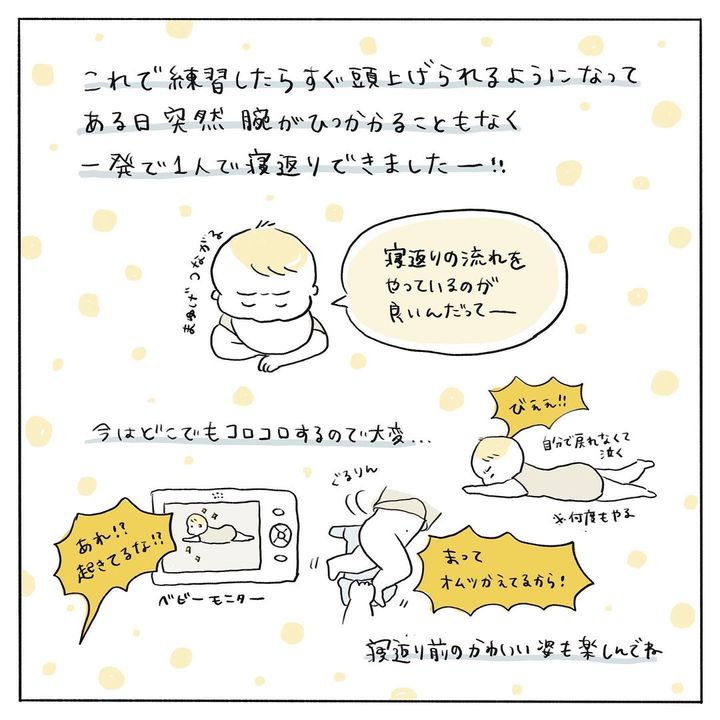 これで練習したらすぐ頭上げられるようになって
ある日突然 腕がひっかかることもなく
一発で1人で寝返りできましたー!!
まゆげつながる
寝返りの流れを
やっているのが
良いんだってー
今はどこでもコロコロするので大変...
びぇぇ!!
自分で戻れなくて
泣く
※何度もやる
あれ!?
起きてるな!?
ベビーモニター
ぐるりん
まって
オムツかえてるから!
寝返り前のかわいい姿も楽しんでね